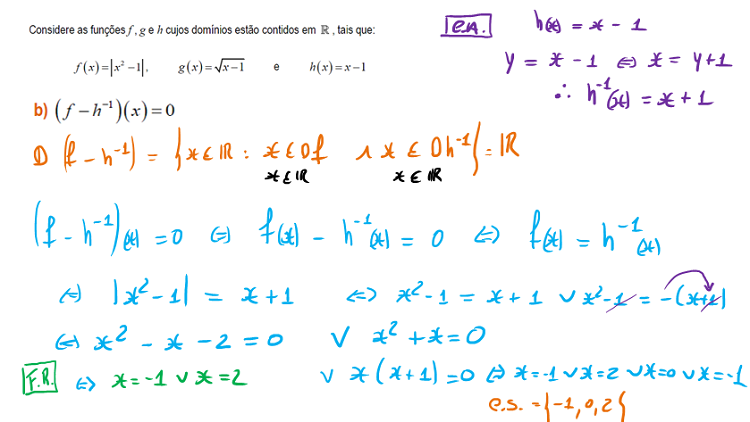 Considere as funções f, g e h cujos domínios estão contidos em ℝ, tais que:
f(x)=|x²−1|, g(x)=√x−1 e h(x)=x−1
b) (f−h⁻¹)(x)=0
c.a. h(x) = x − 1
y = x − 1 ⇔ x = y+1
∴ h⁻¹(x) = x + 1
D (f − h⁻¹) = {x ∈ ℝ : x ∈ Df ∧ x ∈ Dh⁻¹} = ℝ
x ∈ ℝ x ∈ ℝ
(f − h⁻¹)(x) = 0 ⇔ f(x) − h⁻¹(x) = 0 ⇔ f(x) = h⁻¹(x)
⇔ |x²−1| = x+1 ⇔ x²−1 = x+1 ∨ x²−1 = −(x+1)
⇔ x² − x − 2 = 0 ∨ x² + x = 0
F.R. ⇔ x = −1 ∨ x = 2 ∨ x(x+1) = 0 ⇔ x = −1 ∨ x = 2 ∨ x = 0 ∨ x = −1
c.s. = {−1, 0, 2}